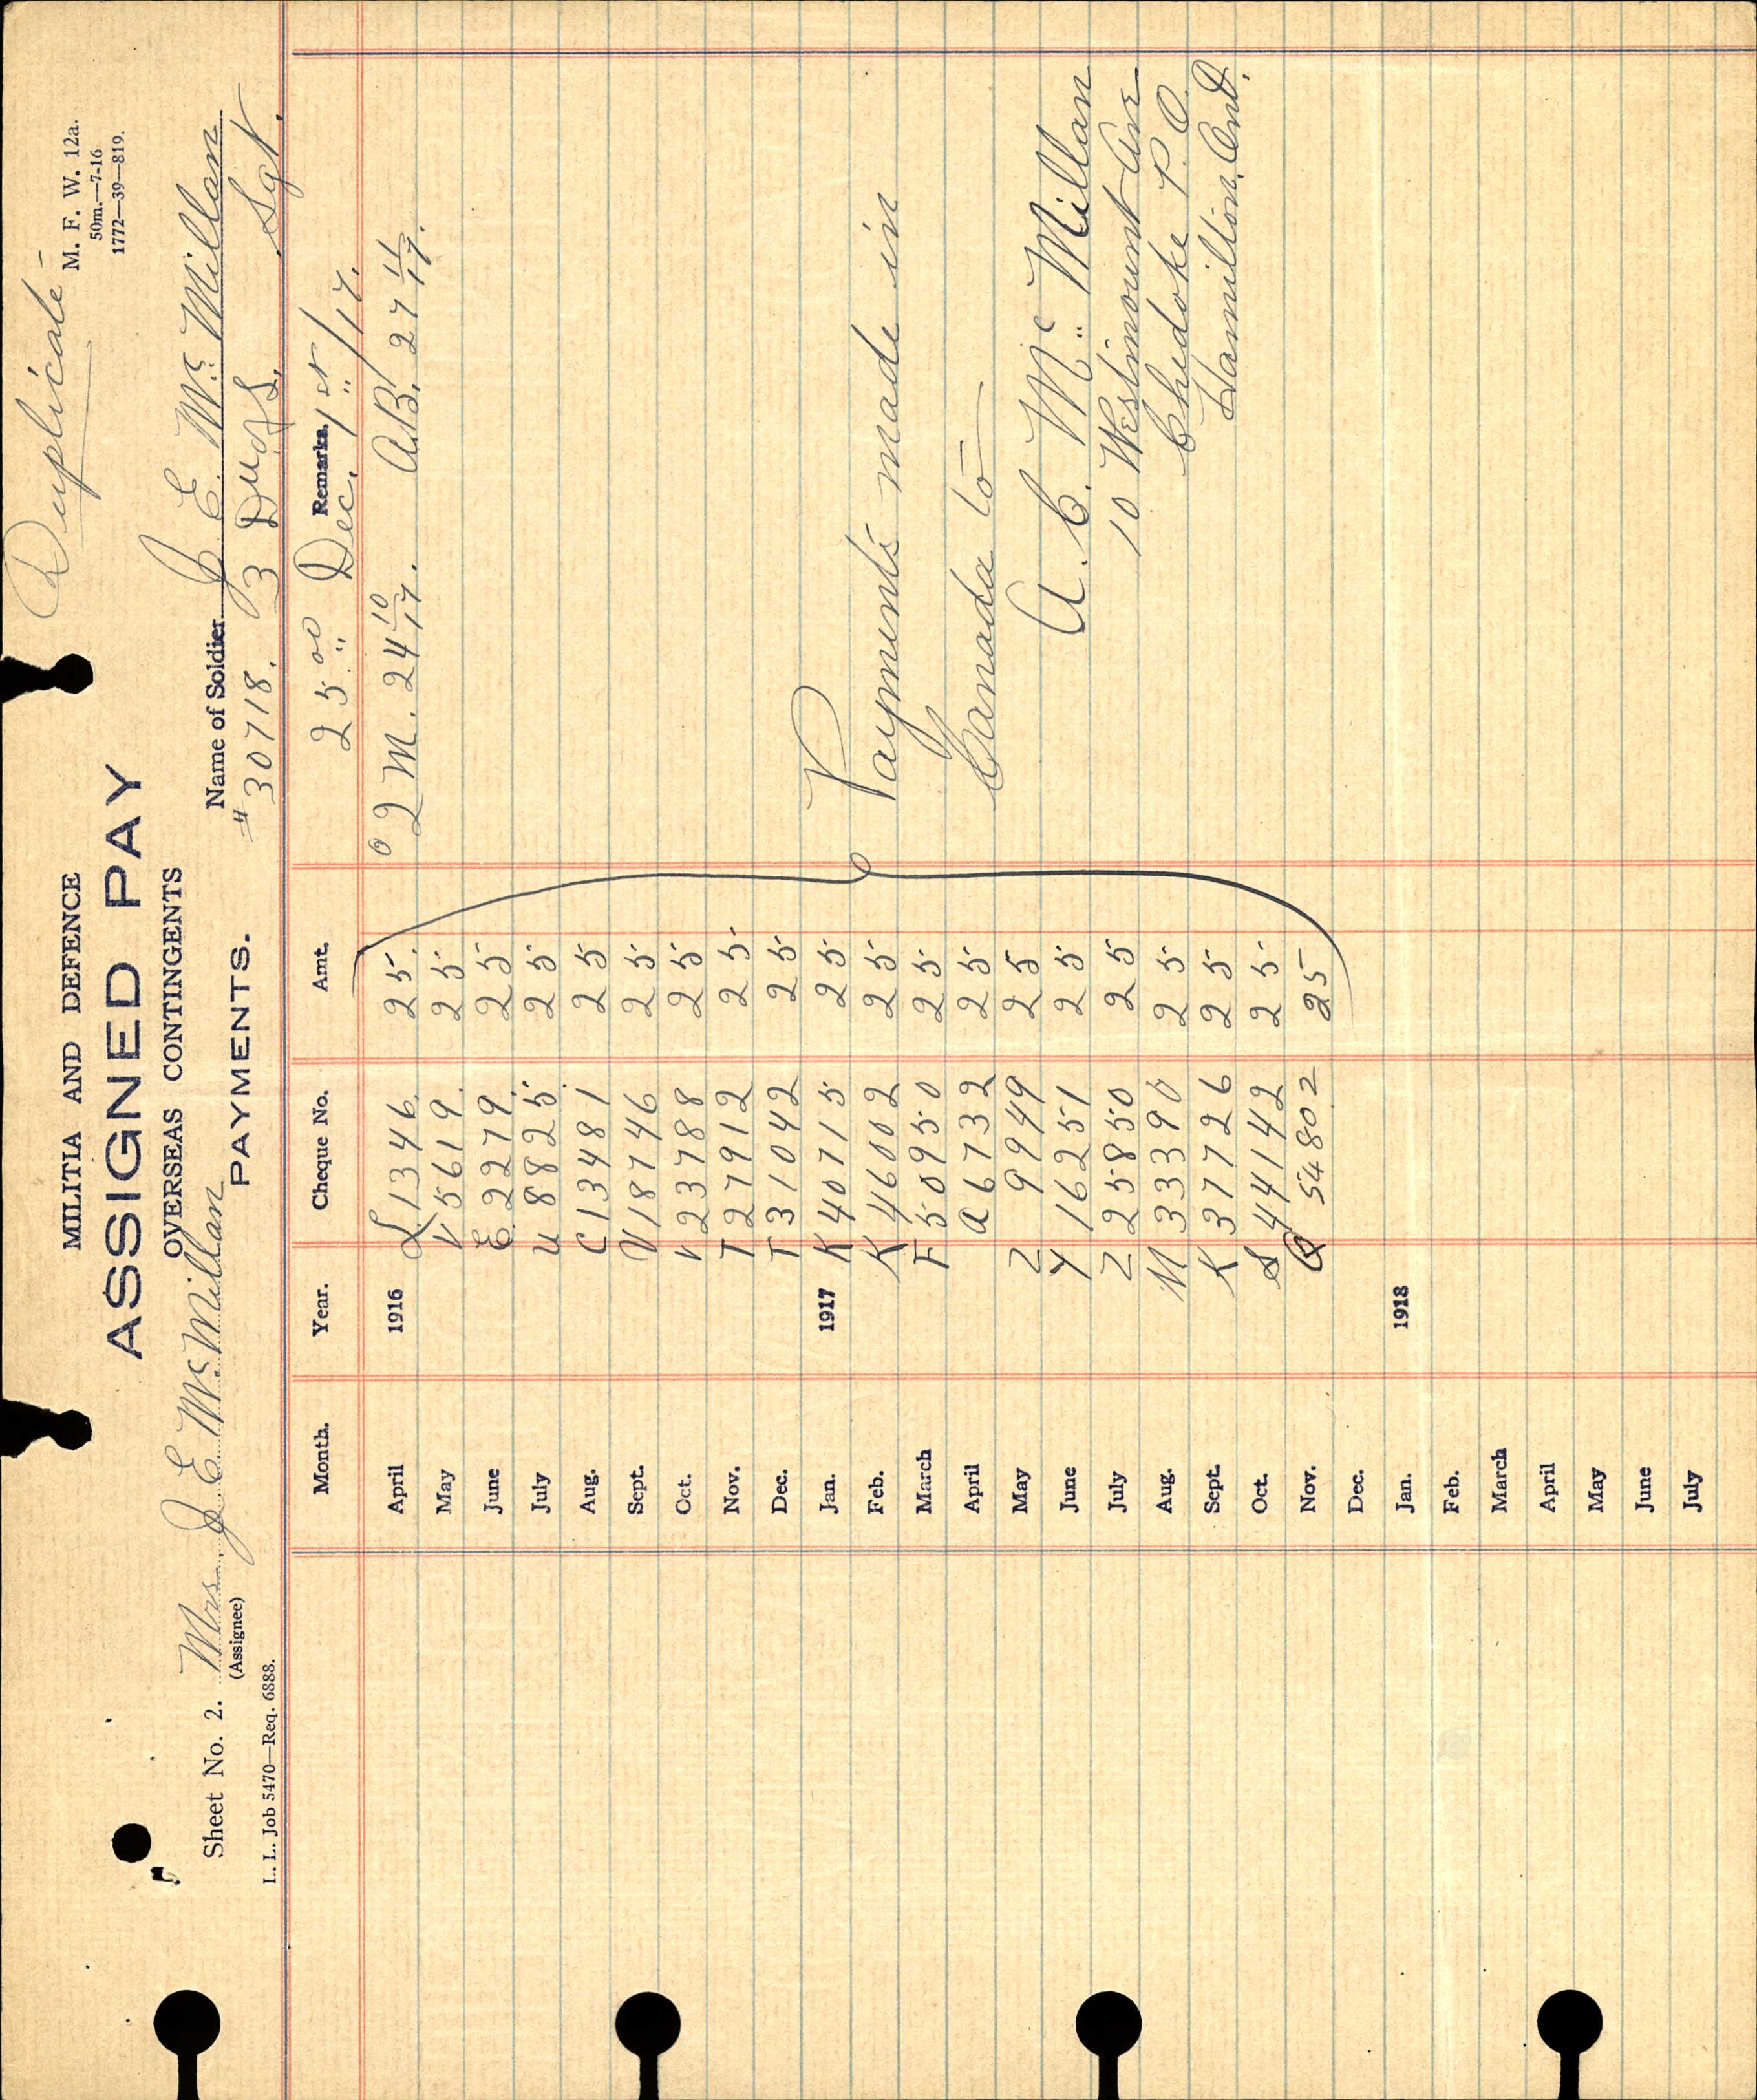 Duplicate -
MILITIA AND DEFENCE
M. F. W. 12a.
ASSIGNED PAY
50m.—7-16
1772—39—819.
OVERSEAS CONTINGENTS
Sheet No. 2. Mrs. J E McMillan
(Assignee)
Name of Soldier J E McMillan
PAYMENTS.
# 30718. Sgt.
I. L. Job 5470—Req. 6888.
Month. Year. Cheque No. Amt. Remarks.
25 00 Dec. 1st/17.
April 1916 L 1346 25. 2 M. 24 10/17. A.B. 27 11/17.
May V 5619 25
June E 2279 25
July U 8825 25
Aug. C 13481 25
Sept. V 18746 25
Oct. V 23788 25
Nov. T 27912 25
Dec. T 31042 25
Jan. 1917 K 40715 25
Feb. K 46002 25 Payments made in
March F 50950 25
April A 6732 25 Canada to
May Z 9949 25
June Y 16251 25 A. C. Mc Millan
July Z 25850 25 10 Westmount Ave
Aug. M 33390 25 Chedoke P. O.
Sept. K 37726 25 Hamilton. Ont.
Oct. S 44142 25
Nov. Q 54802 25
Dec.
Jan. 1918
Feb.
March
April
May
June
July